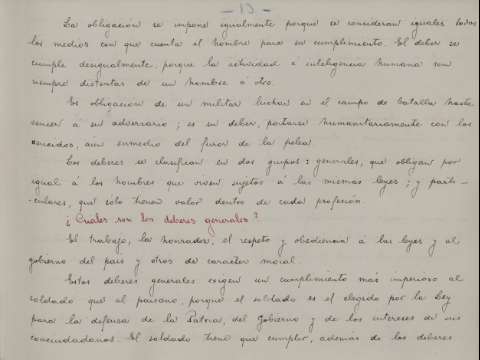 - 13 -
La obligación se impone igualmente porque se consideran iguales todos
los medios con que cuenta el hombre para su cumplimiento. El deber se
cumple desigualmente, porque la actividad é inteligencia humana son
siempre distintas de un hombre á otro.
Es obligación de un militar luchar en el campo de batalla hasta
vencer á su adversario; es un deber, portarse humanitariamente con los
vencidos, aun enmedio del furor de la pelea.
Los deberes se clasifican en dos grupos: generales, que obligan por
igual á los hombres que viven sujetos á las mismas leyes; y parti-
culares, que solo tienen valor dentro de cada profesión.
¿Cuales son los deberes generales?
El trabajo, la honradez, el respeto y obediencia á las leyes y al
gobierno del país y otros de caracter moral.
Estos deberes generales exigen un cumplimiento más imperioso al
soldado que al paisano, porque el soldado es el elegido por la Ley
para la defensa de la Patria, del Gobierno y de los intereses de sus
conciudadanos. El soldado tiene que cumplir, además de los deberes